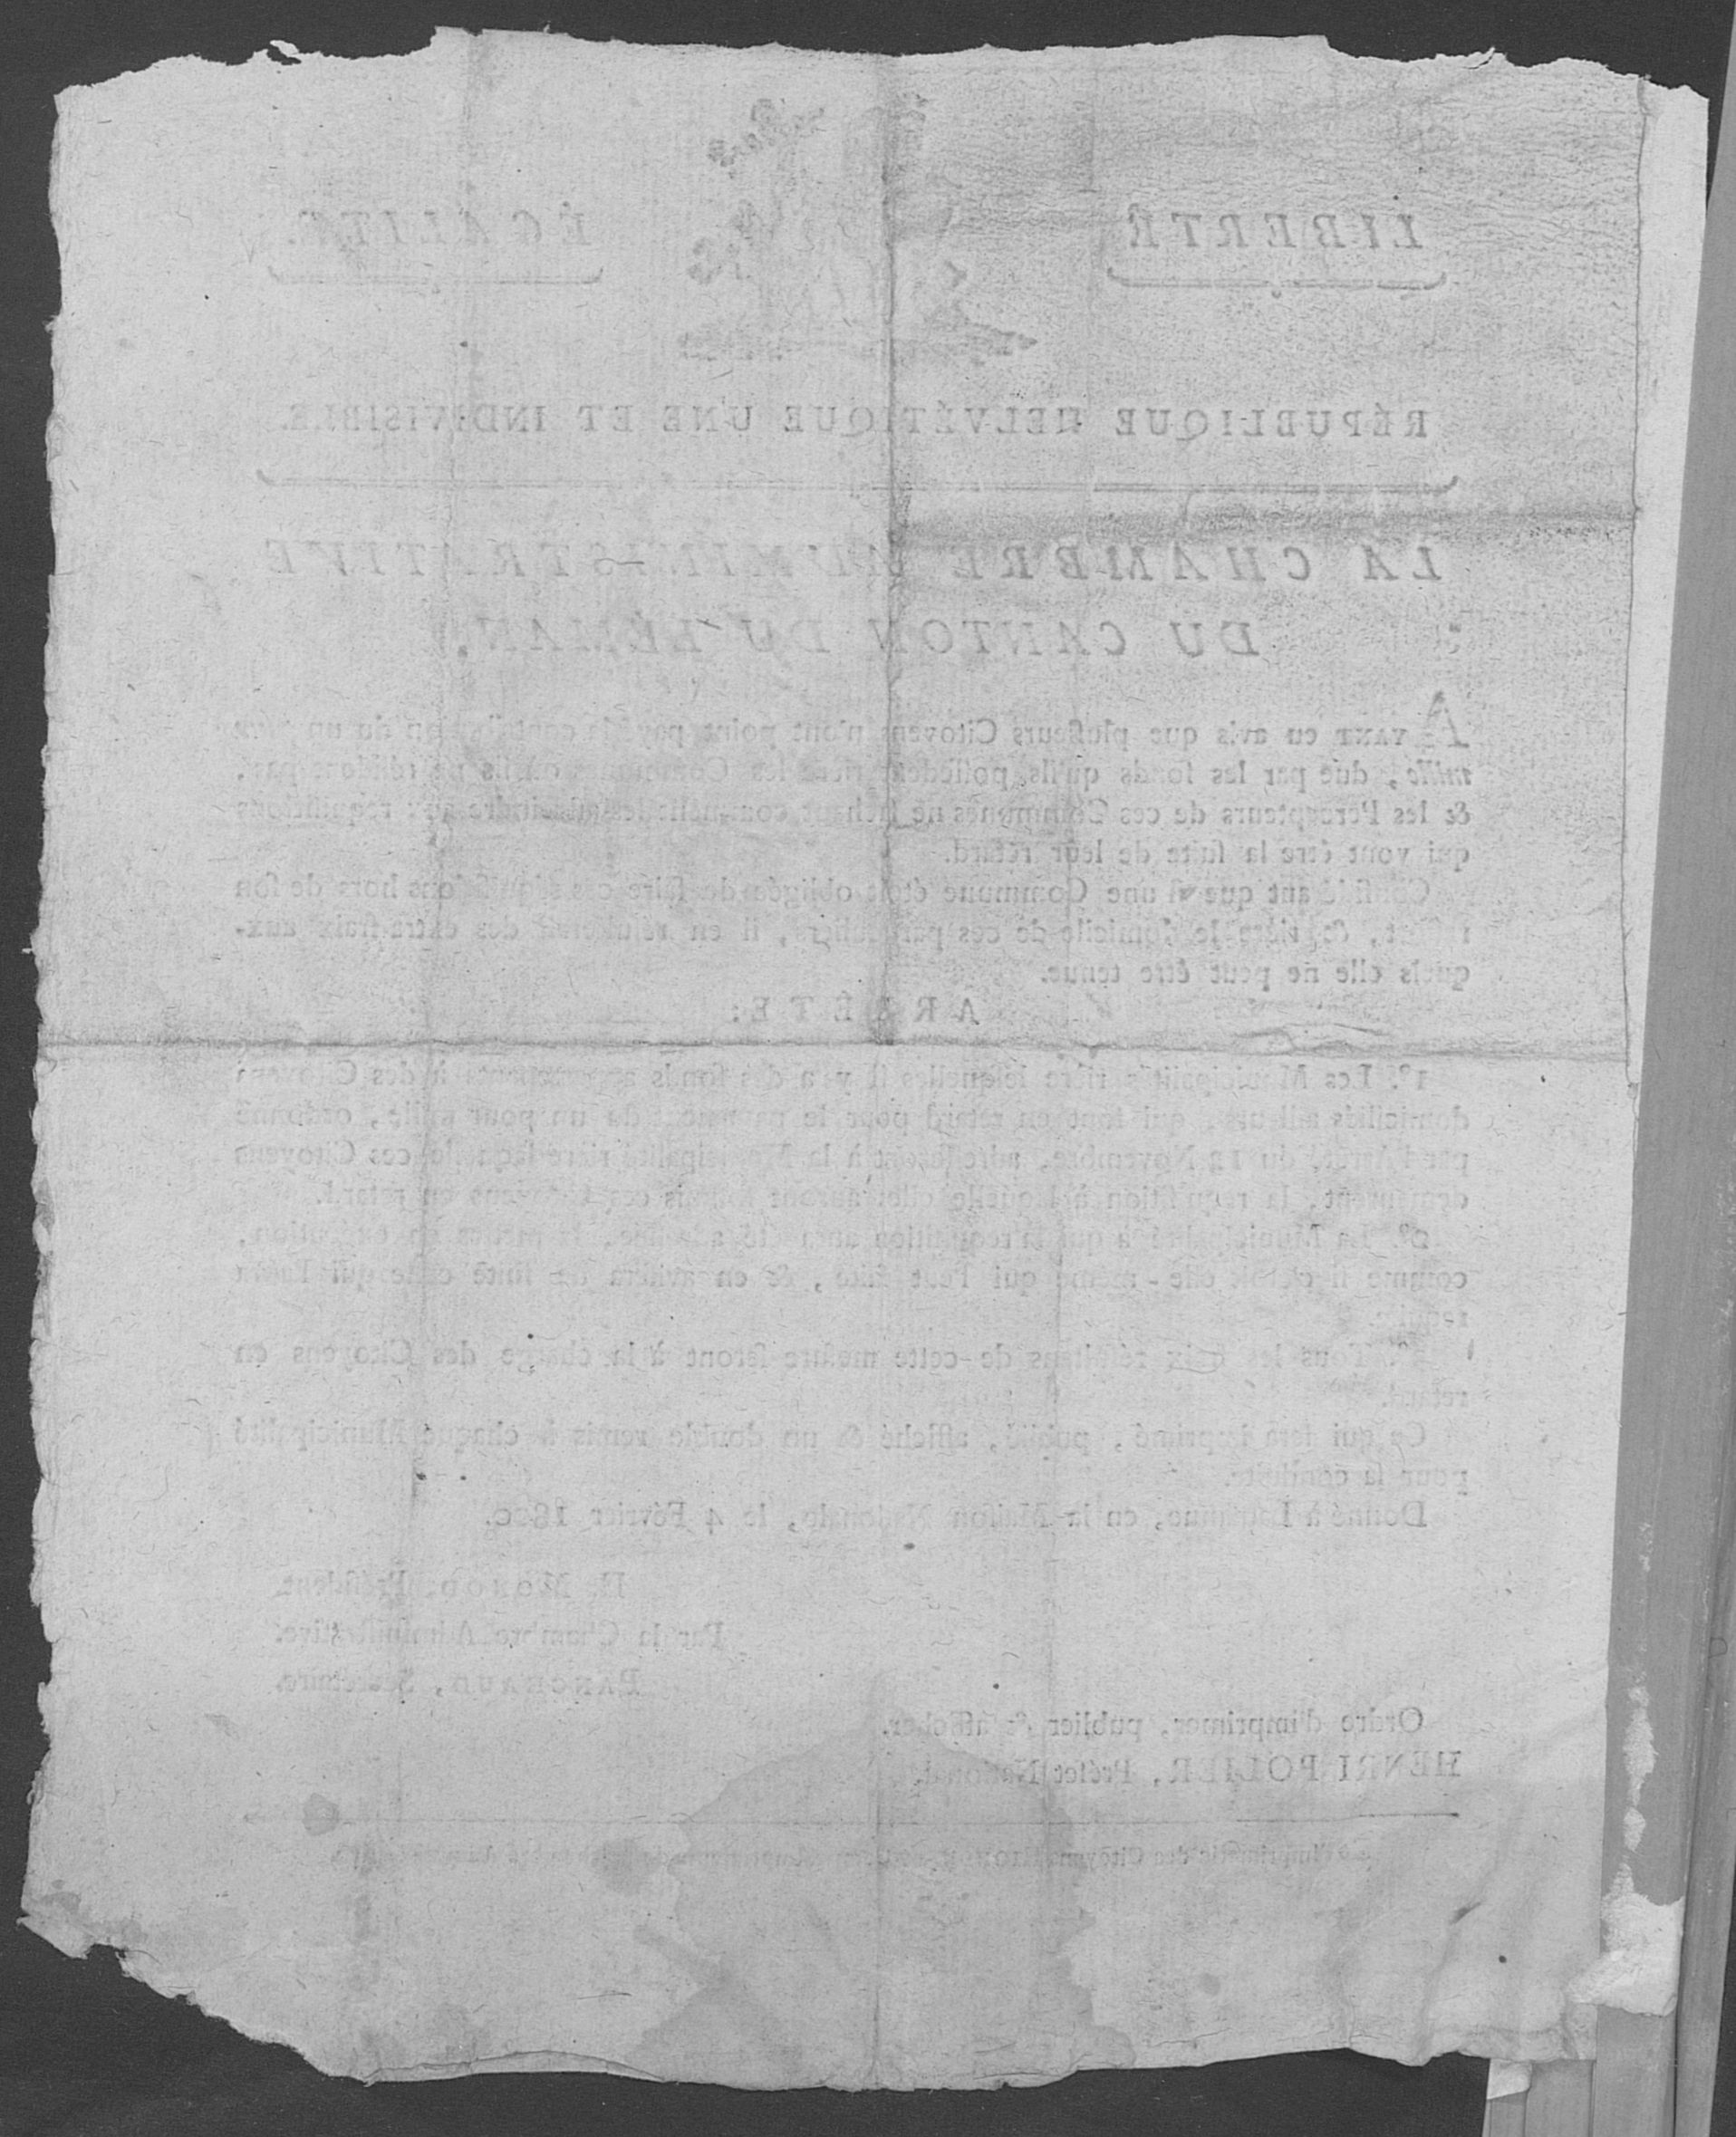 LIBERTÉ ÉGALITÉ.
RÉPUBLIQUE HELVÉTIQUE UNE ET INDIVISIBLE.
LA CHAMBRE ADMINISTRATIVE
DU CANTON DU LÉMAN,
AYANT eu avis que plusieurs Citoyens n'ont point payé la contribution du un pour
mille, due par les fonds qu'ils possèdent rière les Communes où ils ne résident pas,
& les Percepteurs de ces Communes ne sachant comment les aux requisitions
qui vont être la suite de leur retard.
Considérant que si une Commune étoit obligée de faire ces requisitions hors de son
& rière le domicile de ces particuliers, il en résulteroit des extra-fraix aux-
quels elle ne peut être tenue.
ARRÊTE:
1°. Les Municipalités rière lesquelles il y a des fonds appartenants à des Citoyens
domiciliés ailleurs, qui sont en retard pour le payement du un pour mille, ordonné
par l'Arrêté du 12 Novembre, adresseront à la Municipalité rière laquelle ces Citoyens
demeurent, la requisition à laquelle elles auront soumis ces Citoyens en retard.
2°. La Municipalité à qui la requisition aura été adressée, la mettra en exécution,
comme si c'étoit elle-même qui l'eut faite, & en avisera de suite celle qui l'aura
requise.
3°. Tous les fraix résultans de cette mesure seront à la charge des Citoyens en
retard.
Ce qui sera imprimé, publié, affiché & un double remis à chaque Municipalité
pour sa conduite.
Donné à Lausanne, en la Maison Nationale, le 4 Février 1800.
H. MONOD, Président.
Par la Chambre Administrative.
PANCHAUD, Secrétaire.
Ordre d'imprimer, publier & afficher.
HENRI POLIER, Préfet National.
Imprimerie des Citoyens